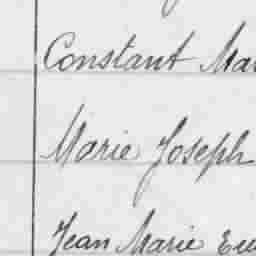 Constant Mar
Marie Joseph
Jean Marie Eu